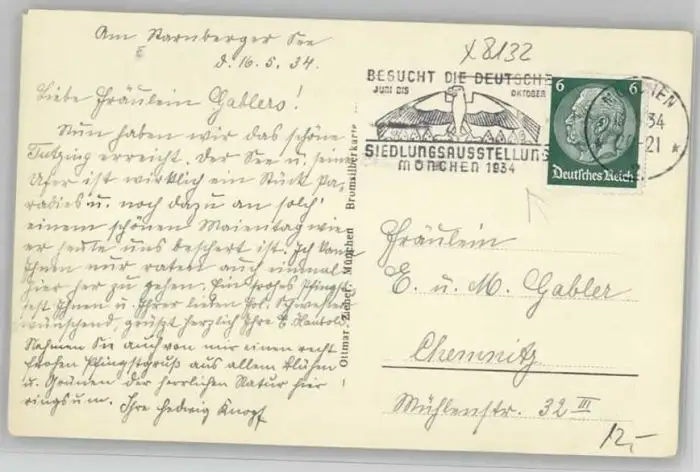 Am Starnberger See
d. 16. 5. 34.
Liebe Fräulein Gablers!
Nun haben wir das schöne
Tutzing erreicht. Der See u. seine
Ufer ist wirklich ein Stück Pa-
radies u. noch dazu an solch'
einem schönen Maientag wie
er heute uns beschert ist. Ich kann
Ihnen nur raten auch einmal
hier her zu gehen. Ein frohes Pfingst-
fest Ihnen u. Ihrer lieben Frl. Schwester
wünschend, grüsst herzlich Ihre E.
Nehmen Sie auch von mir einen recht
frohen Pfingstgruß aus allem Blühen
u. Grünen der herrlichen Natur hier
ringsum. Ihre Hedwig Knopf
Ottmar Zieher - München Bromsilberkarte
x8132
BESUCHT DIE DEUTSCHE
JUNI BIS OKTOBER
SIEDLUNGSAUSSTELLUNG
MÜNCHEN 1934
6 6
Deutsches Reich
MÜNCHEN
34
-21
Fräulein
E. u. M. Gabler
Chemnitz
Mühlenstr. 32 III
12,-